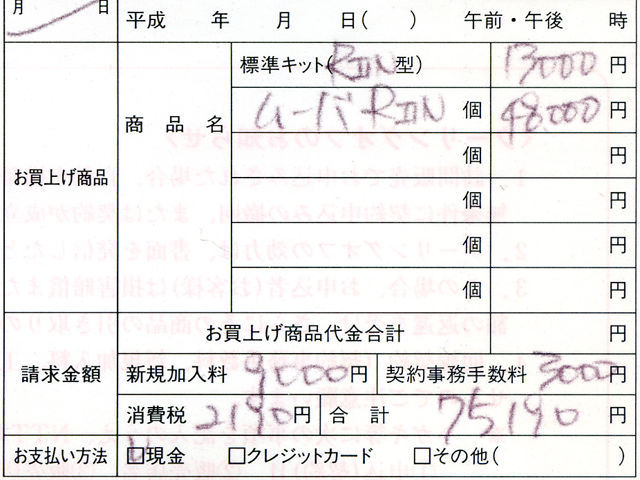 月 日 平成 年 月 日( ) 午前・午後 時
お買上げ商品 商品名 標準キット(RⅡN型) 13000円
ムーバRⅡN 個 48000円
個 円
個 円
個 円
個 円
お買上げ商品代金合計 円
請求金額 新規加入料 9000円 契約事務手数料 3000円
消費税 2190円 合計 75190円
お支払い方法 ☑現金 □クレジットカード □その他( )